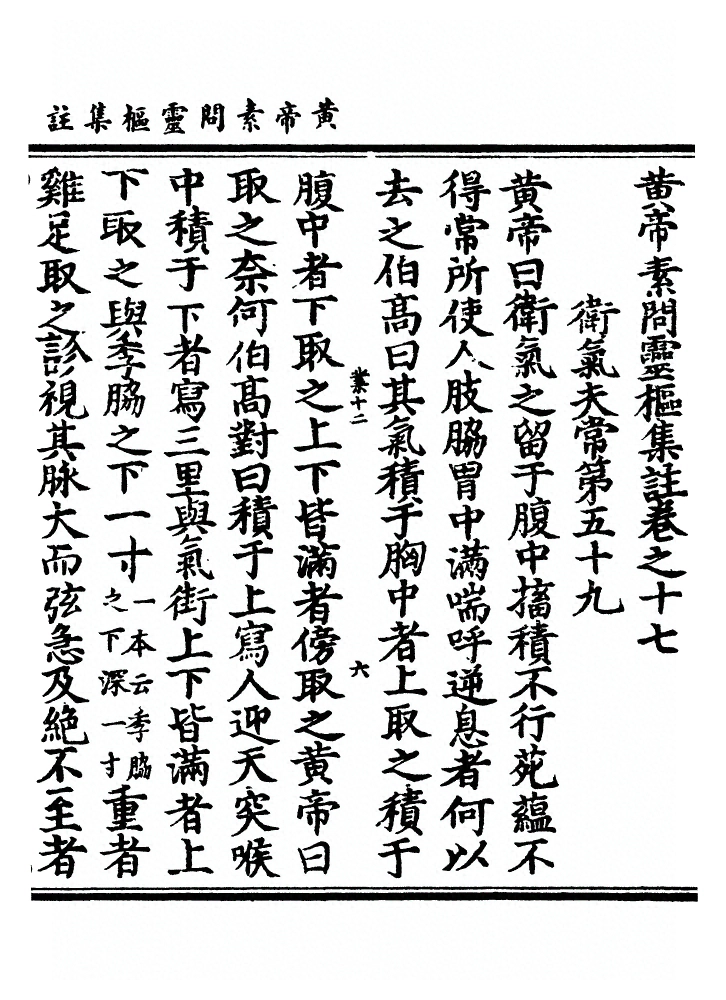 黃帝素問靈樞集註
黃帝素問靈樞集註卷之十七
衛氣失常第五十九
黃帝曰衛氣之留于腹中搐積不行苑蘊不
得常所使人肢脇胃中滿喘呼逆息者何以
去之伯高曰其氣積于胸中者上取之積于
業十二
六
腹中者下取之上下皆滿者傍取之黃帝曰
取之奈何伯高對曰積于上寫人迎天突喉
中積于下者寫三里與氣街上下皆滿者上
下取之與季脇之下一寸一本云季脇之下深一寸重者
雞足取之診視其脉大而弦急及絕不至者